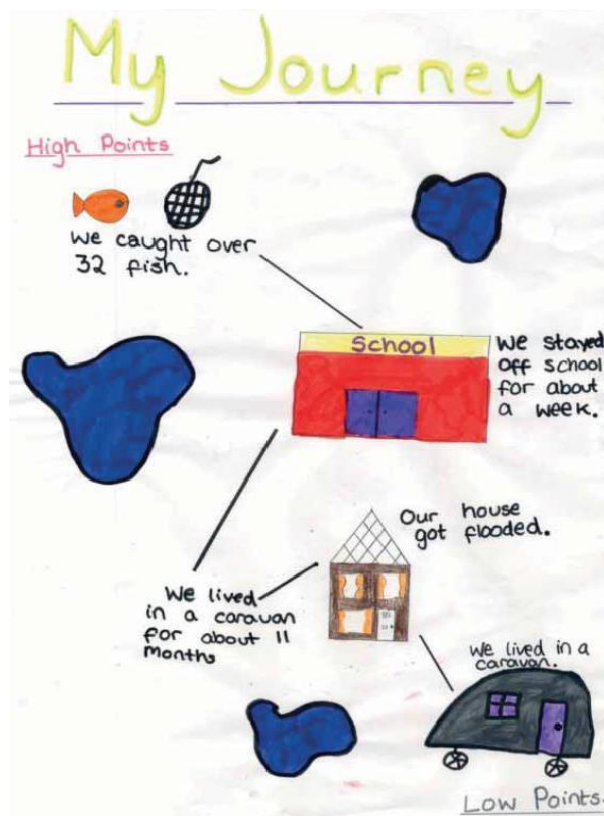 My Journey
High Points
We caught over
32 fish.
School
We stayed
off school
for about
a week.
Our house
got flooded.
We lived
in a caravan
for about 11
months
We lived in a
caravan.
Low Points.